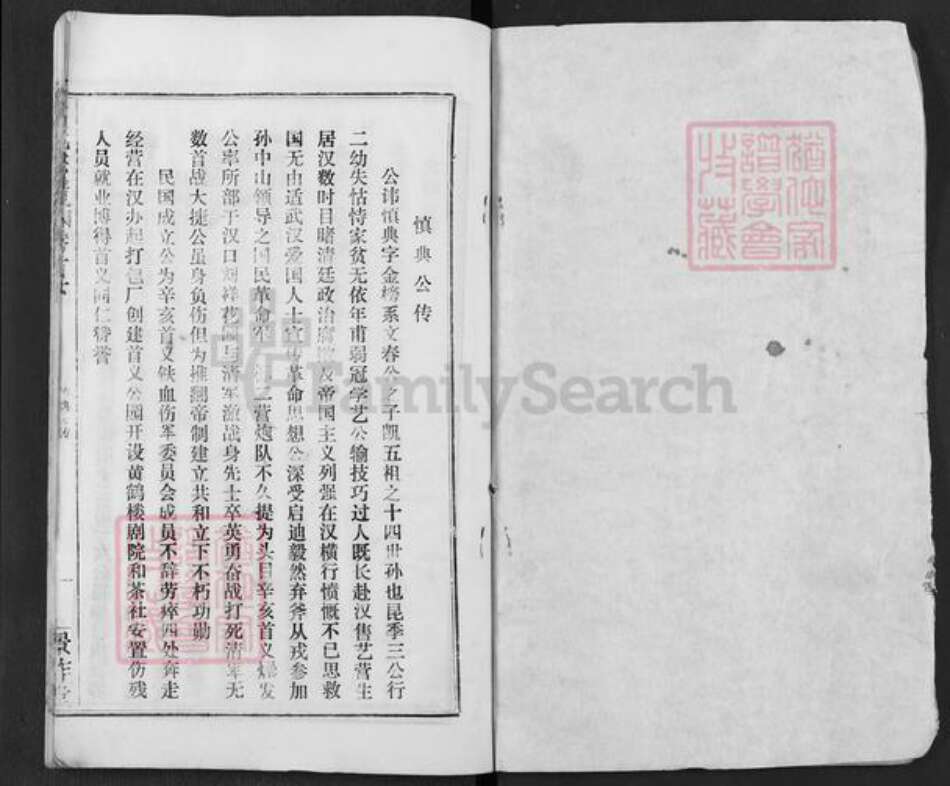 慎典公传
公讳慎典字金榜系文春公之子凯五祖之十四世孙也昆季三公行
二幼失怙恃家贫无依年甫弱冠学艺公输技巧过人既长赴汉售艺营生
居汉数时目睹清廷政治腐 友帝国主义列强在汉横行愤慨不已思救
国无由适武汉爱国人士宣传革命思想公深受启迪毅然弃斧从戎参加
孙中山领导之国民革命军 二营炮队不久提为头目辛亥首义爆发
公率所部于汉口刘祥花园与清军激战身先士卒英勇奋战打死清军无
数首战大捷公虽身负伤但为推翻帝制建立共和立下不朽功勋
民国成立公为辛亥首义铁血伤军委员会成员不辞劳瘁四处奔走
经营在汉办起打包厂创建首义公园开设黄鹤楼剧院和茶社安置伤残
人员就业博得首义同仁赞誉
一
FamilySearch
谱学会
收藏